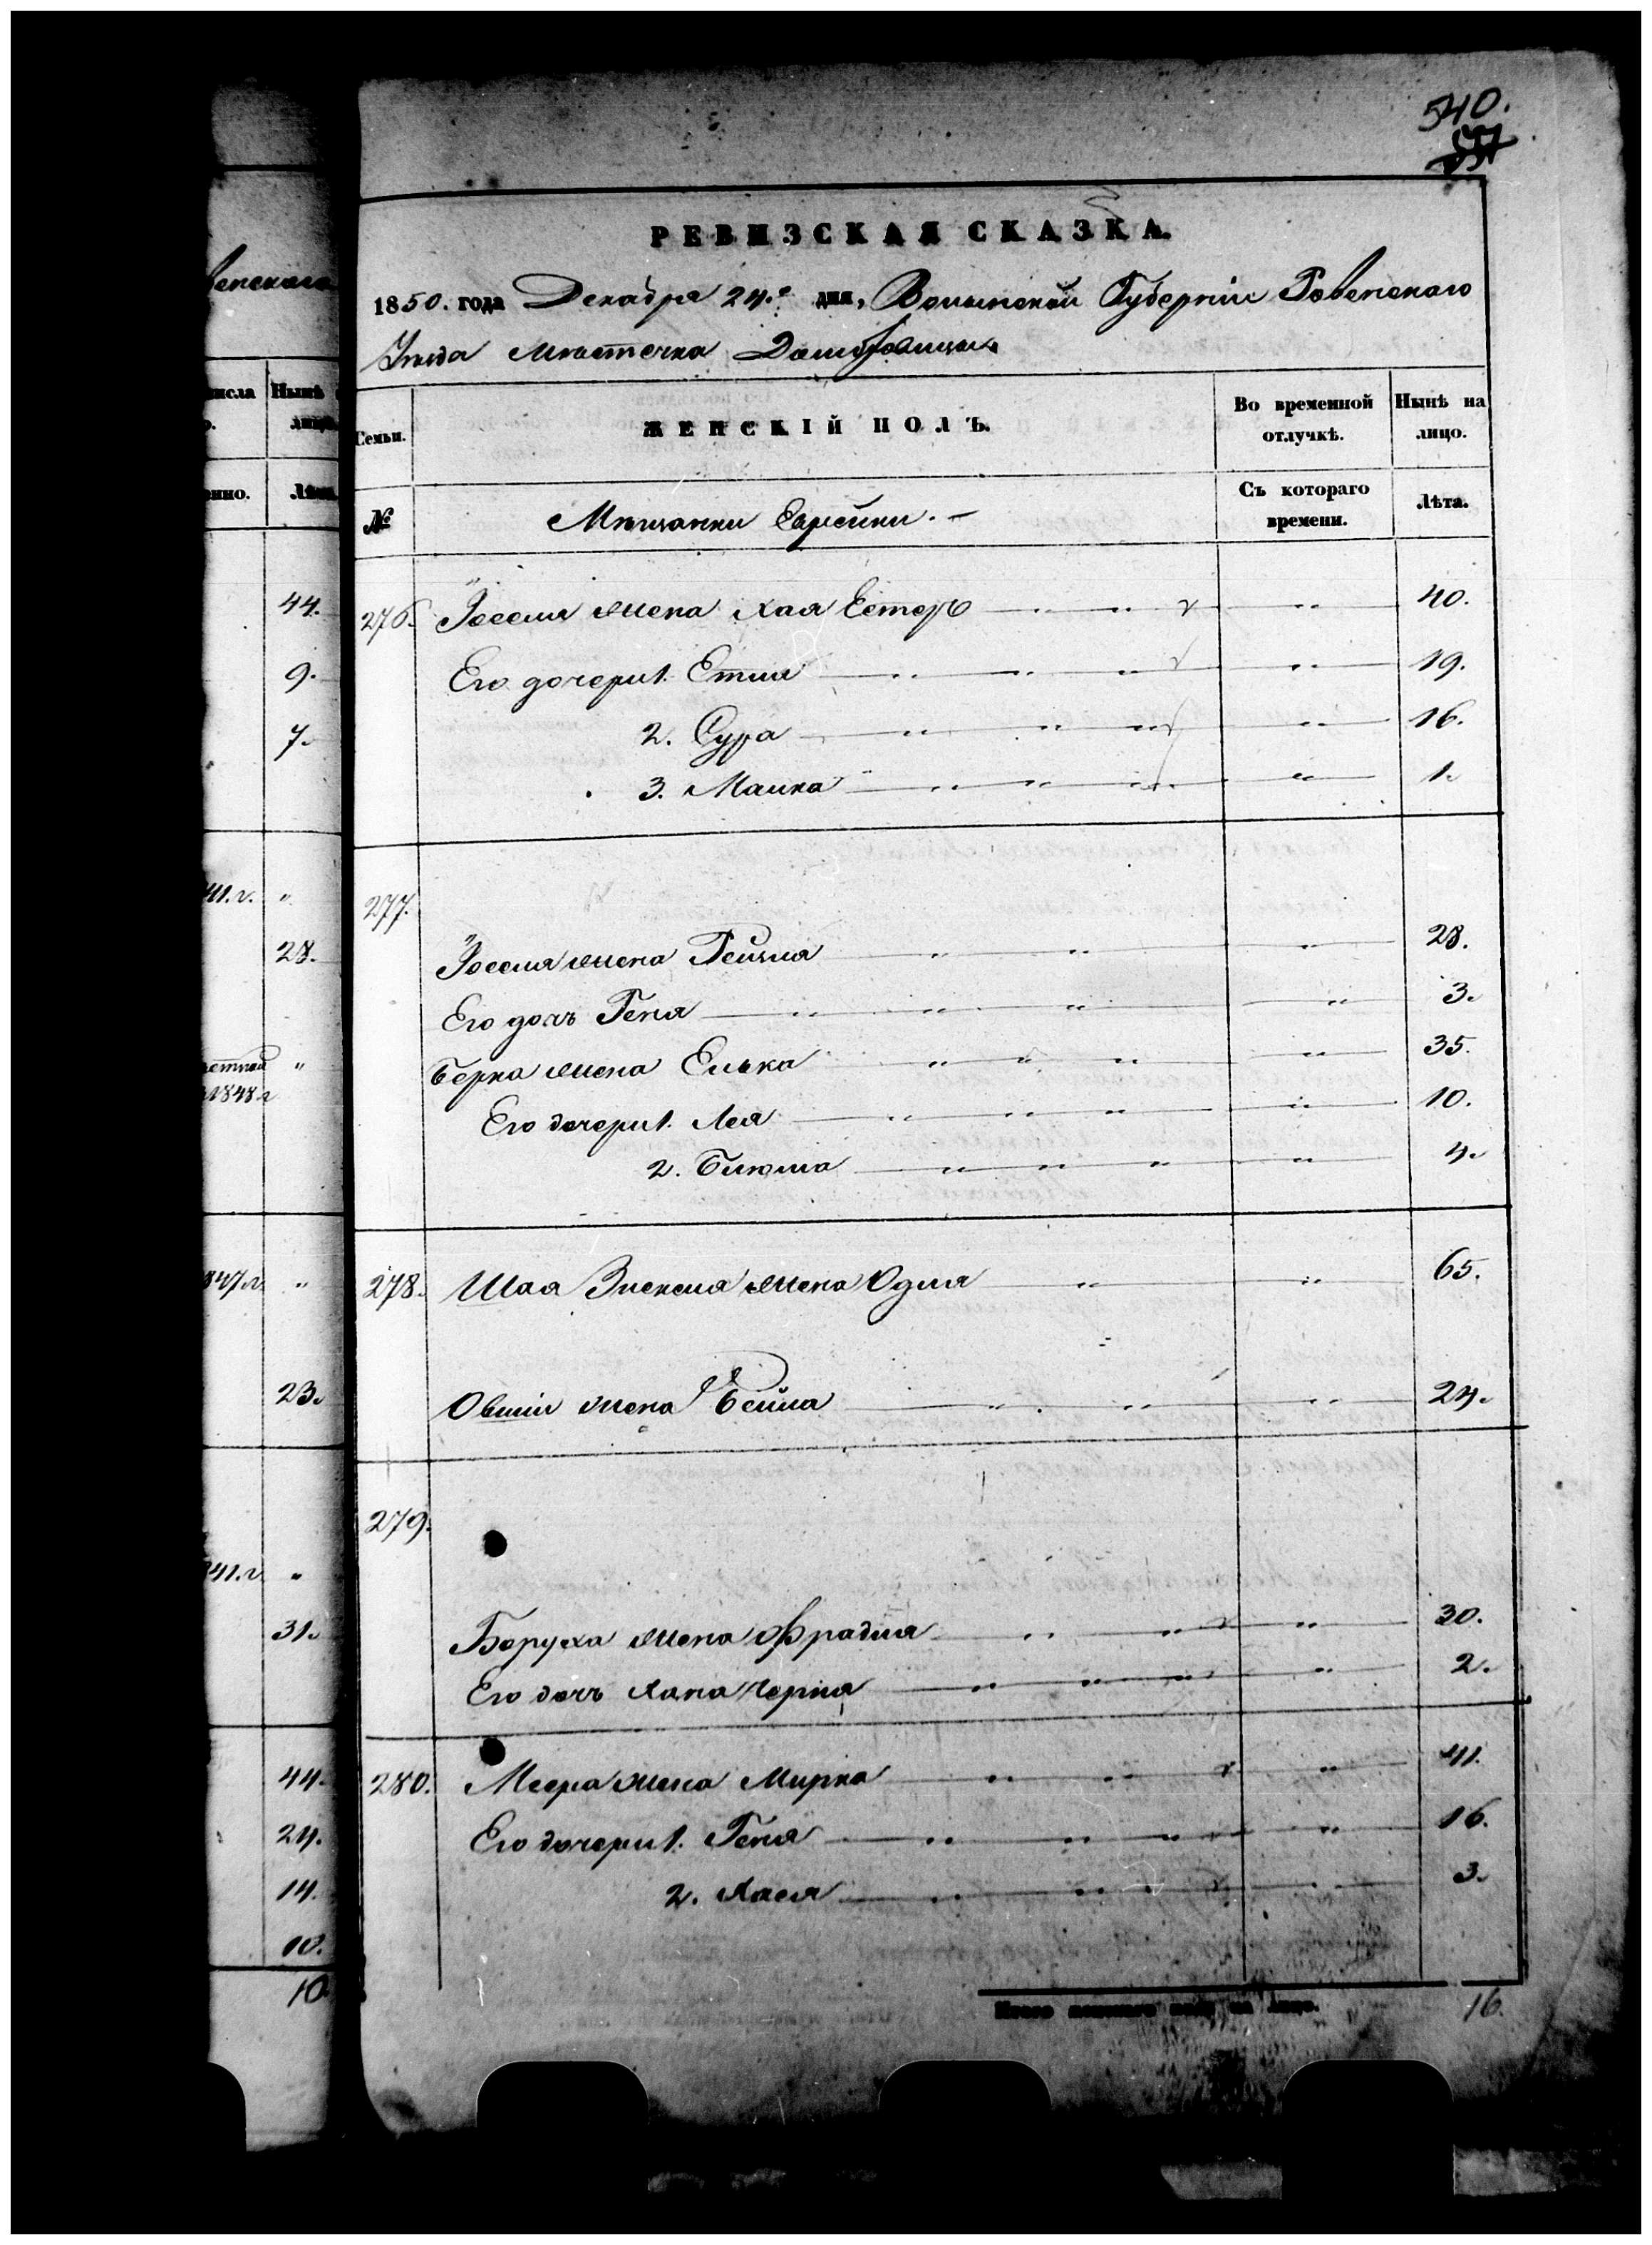 540.
РЕВИЗСКАЯ СКАЗКА.
1850. года Декабря 24.го дня, Волынской Губерніи Ровенскаго
Уѣзда Мѣстечка Домбровицы
Семьи. ЖЕНСКІЙ ПОЛЪ. Во временной отлучкѣ. Нынѣ на лицо.
№ Мѣщанки Еврейки. Съ котораго времени. Лѣта.
276. Іоселя жена Хая Естеръ 40.
Его дочери 1. Етля 19.
2. Сура 16.
3. Малка 1.
277.
Іоселя жена Рейзля 28.
Его дочь Геня 3.
Берка жена Елька 35.
Его дочери 1. Лея 10.
2. Блюма 4.
278. Шая жена Одля 65.
Овшіи жена Бейла 24.
279.
Боруха жена Фрадля 30.
Его дочь Хана Черня 2.
280. Меера жена Мирка 41.
Его дочери 1. Геня 16.
2. Хася 3.
Итого женскаго пола на лицо. 16.
венскаго
числа Нынѣ
лицо
Лѣта
44.
9.
7.
41.г. "
28.
1848 г
847.г. "
23.
41.г. "
31.
44.
24.
14.
10.
10.